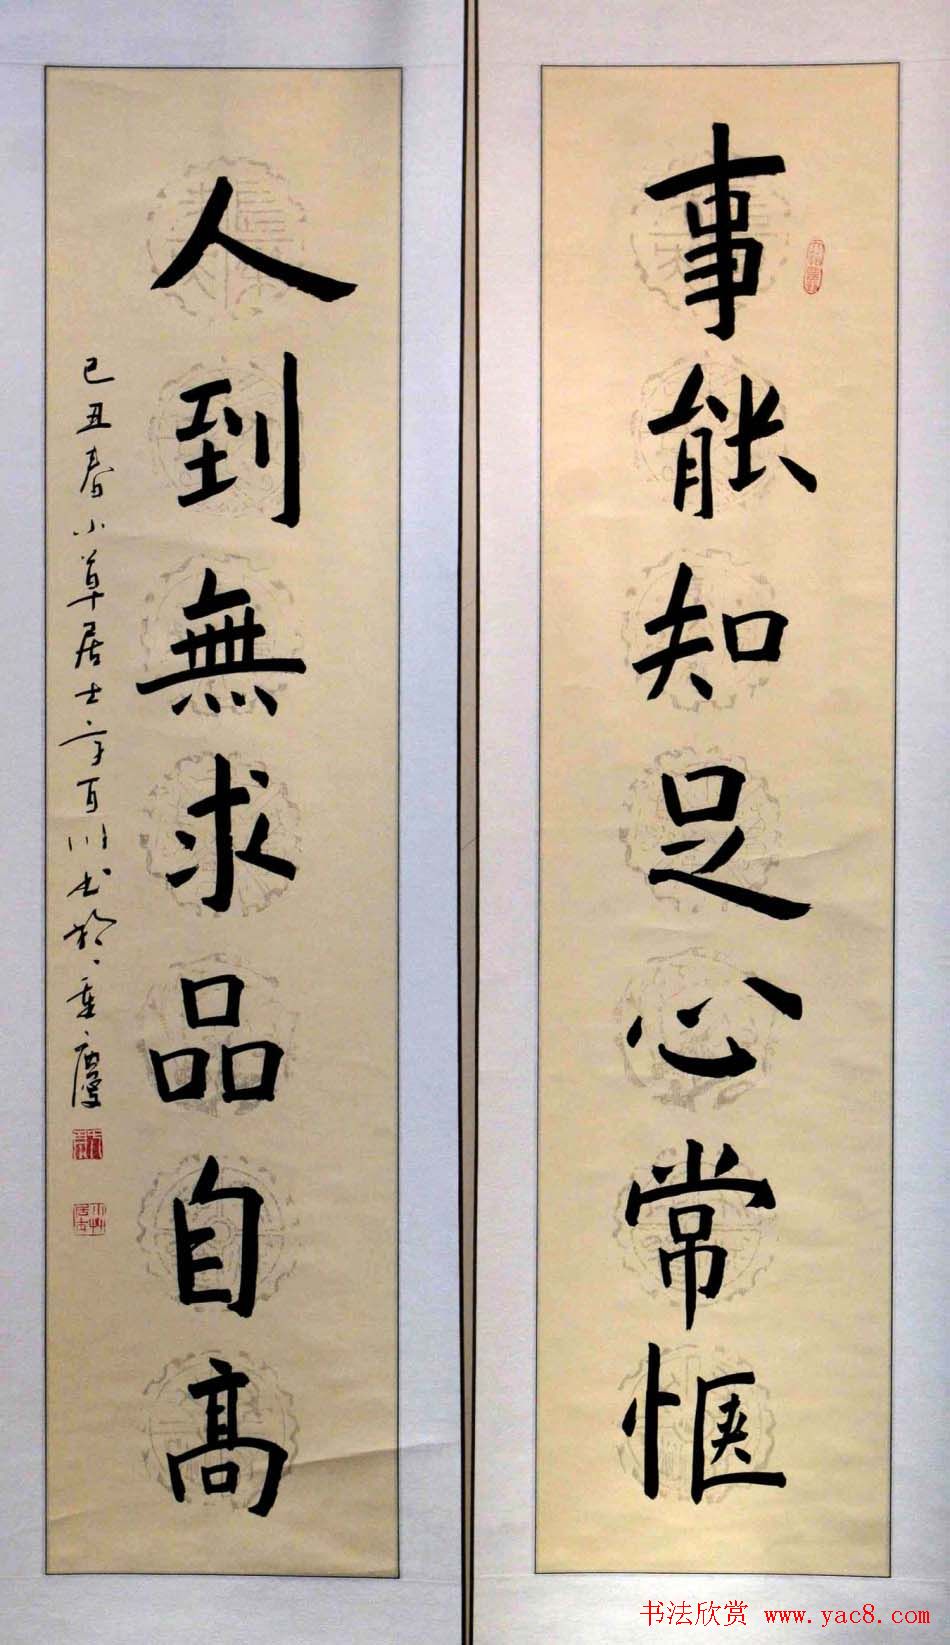 事能知足心常惬
人到無求品自高
己丑春小草居士百川书於重慶
小草居士
书法欣赏 www.yac8.com